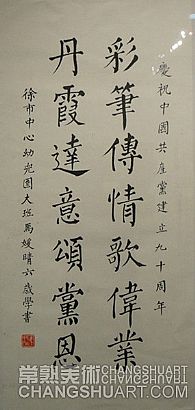 慶祝中國共産黨建立九十周年
彩筆傳情歌偉業
丹霞達意頌黨恩
徐市中心幼兒園大班馬媛晴六歲學書
常熟美術
CHANGSHUART.COM